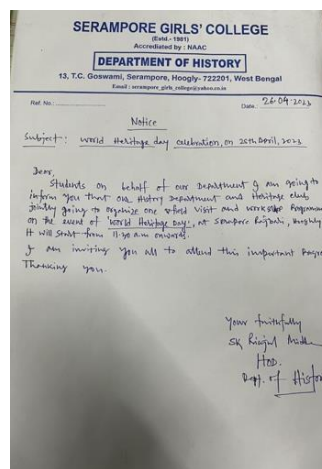 SERAMPORE GIRLS' COLLEGE
(Estd.- 1981)
Accredited by : NAAC
DEPARTMENT OF HISTORY
13, T.C. Goswami, Serampore, Hoogly- 722201, West Bengal
Email : serampore_girls_college@yahoo.co.in
Ref. No.:
Date. 26.04.2023
Notice
Subject: World Heritage day celebration, on 26th April, 2023
Dear,
Students on behalf of our Department I am going to
inform you that our History Department and Heritage club,
jointly going to organize one field visit and workshop Programme
on the event of 'World Heritage Day', at Serampore Rajbari, Hooghly
It will start from 11.30 a.m onwards.
I am inviting you all to attend this important Progr
Thanking you.
Your faithfully
SK
HOD.
Dept. of Histo